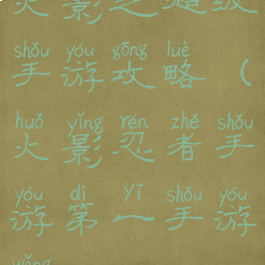 火影之超级
shǒu yóu gōng lüè
手游攻略（
huǒ yǐng rěn zhě shǒu
火影忍者手
yóu dì yī shǒu yóu
游第一手游
wǎng